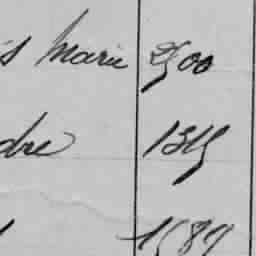 s Marie 2500
dre 1315
1589